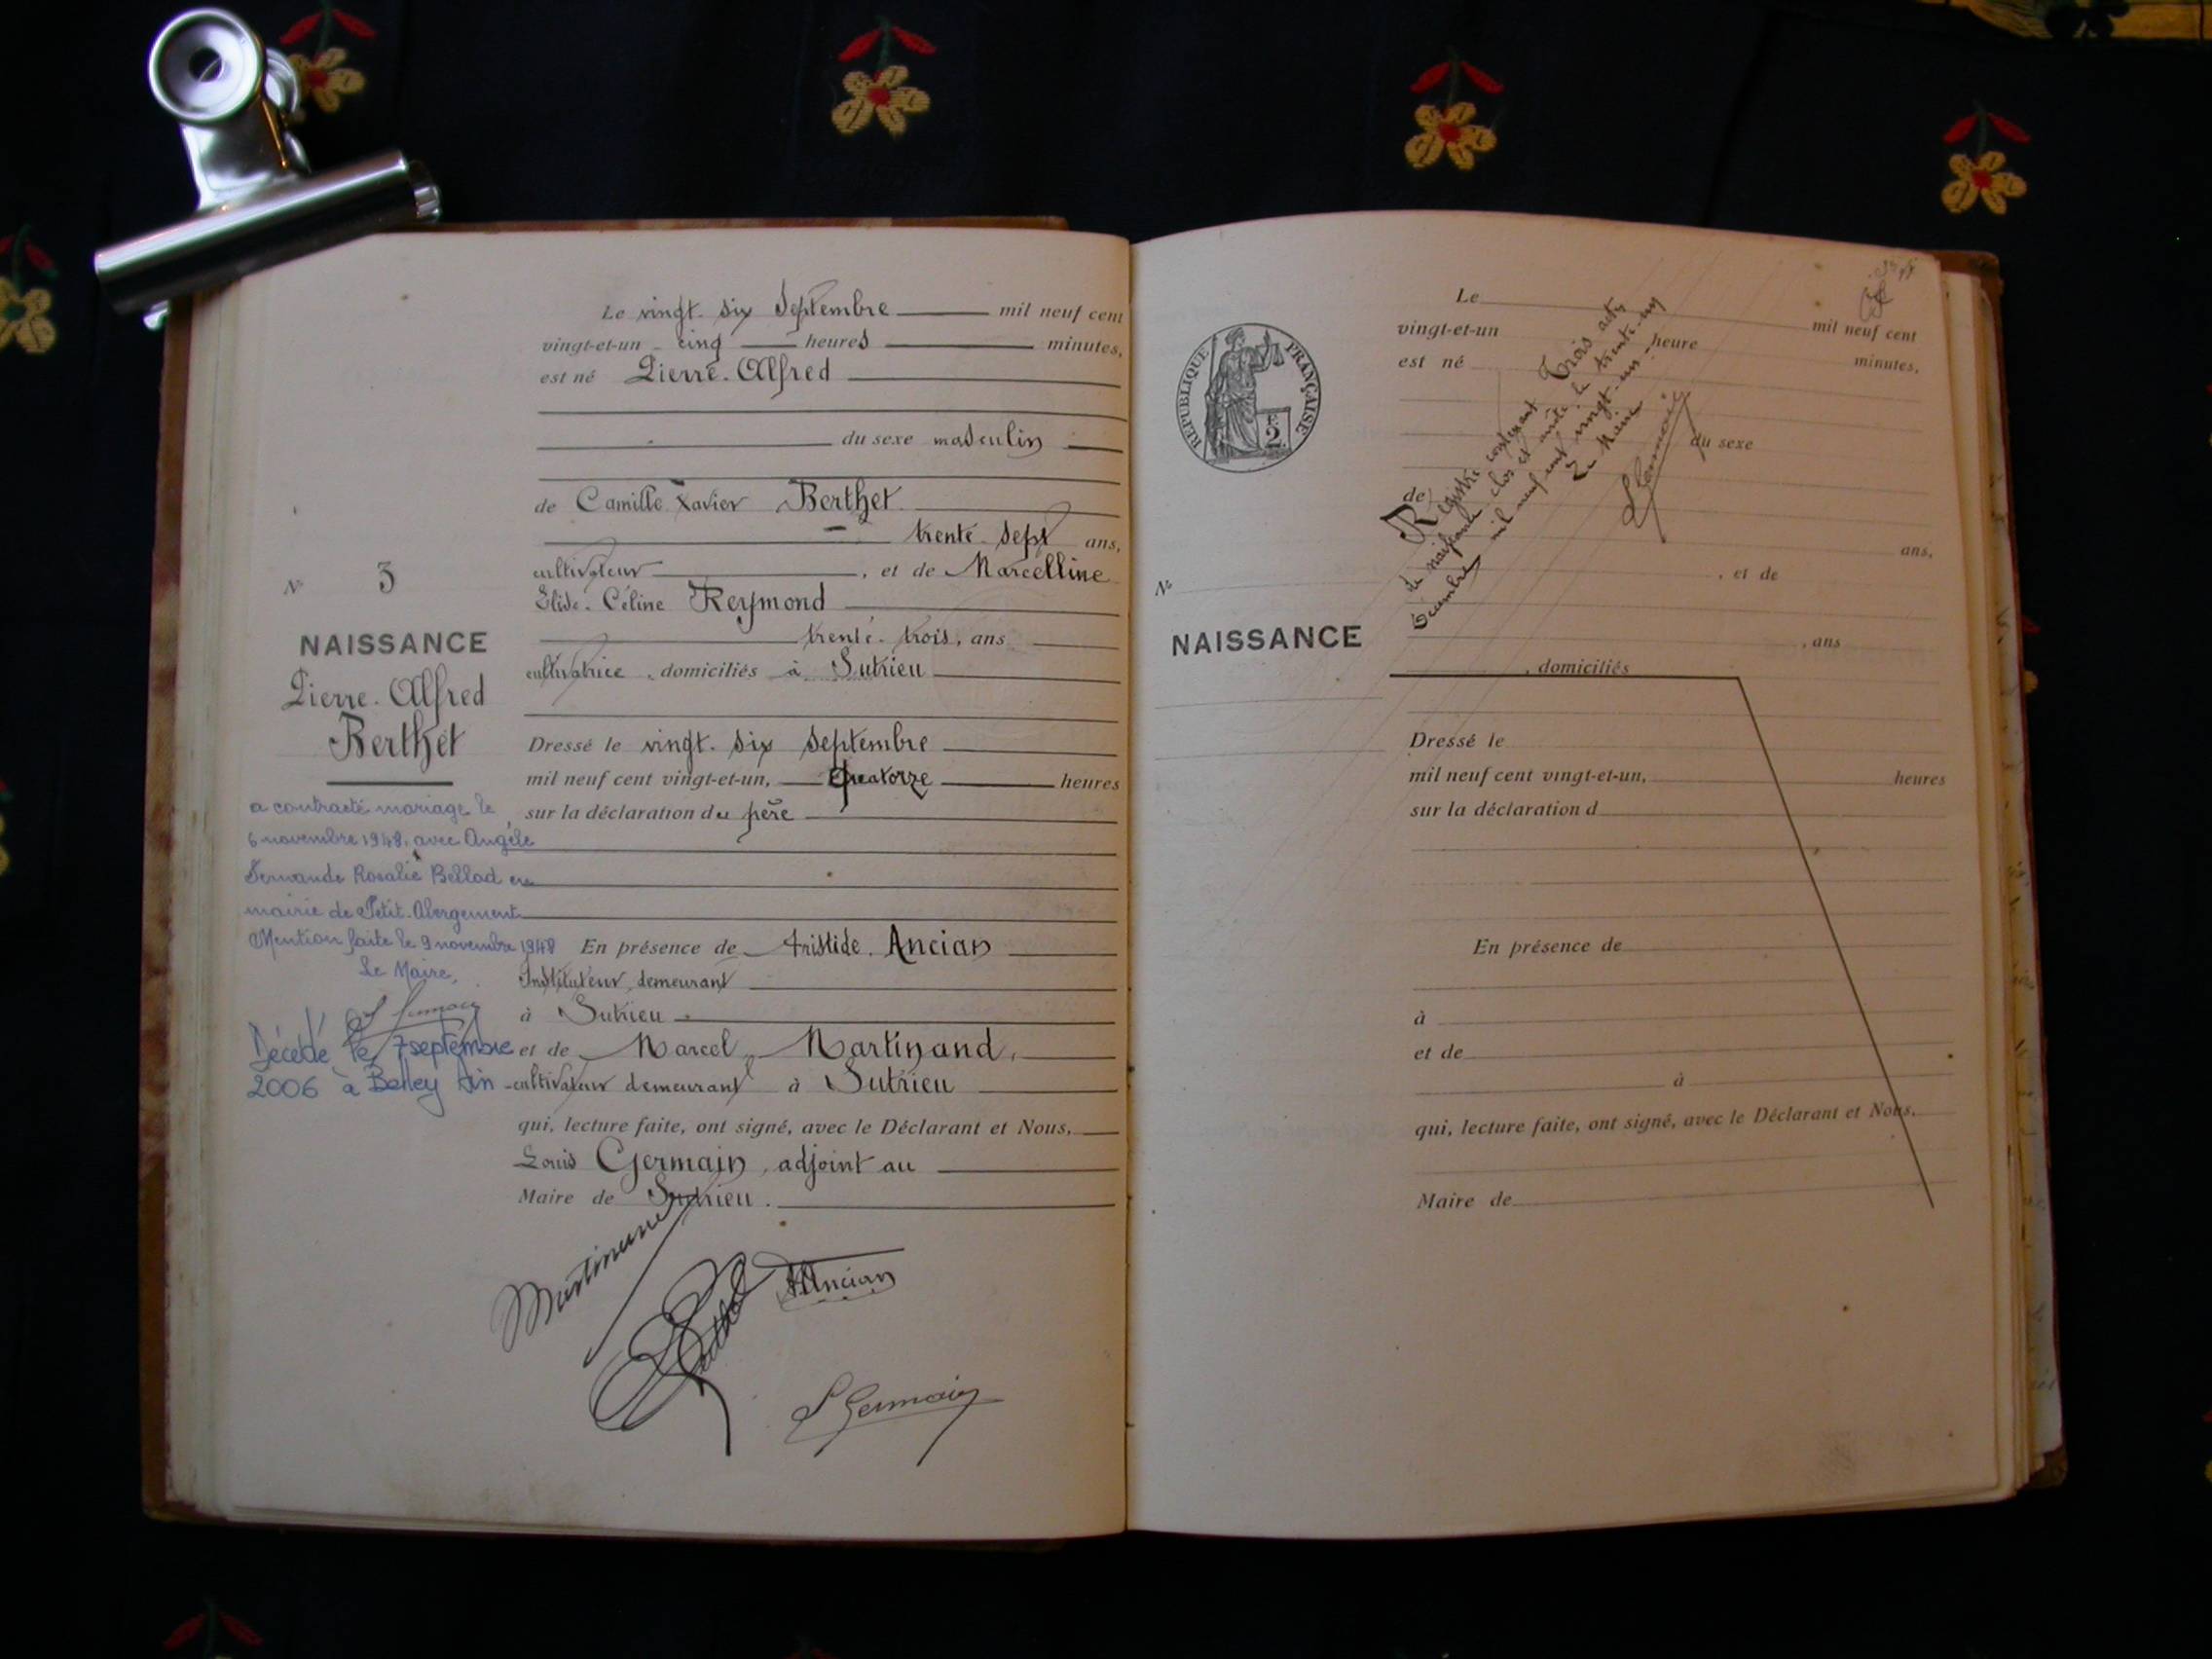 Le vingt-six Septembre mil neuf cent
vingt-et-un cinq heures minutes,
est né Pierre-Alfred
du sexe masculin
de Camille Xavier Berthet
trente-sept ans,
cultivateur , et de Marcelline
Elise-Céline Reymond
trente-trois, ans
cultivatrice , domiciliés à Sutrieu
Dressé le vingt-six septembre
mil neuf cent vingt-et-un, quatorze heures
sur la déclaration du père
En présence de Aristide Ancian
Instituteur demeurant
à Sutrieu
et de Marcel Martinand,
cultivateur demeurant à Sutrieu
qui, lecture faite, ont signé, avec le Déclarant et Nous,
Louis Germain, adjoint au
Maire de Sutrieu.
Martinand
Berthet
A Ancian
L Germain
N° 3
NAISSANCE
Pierre-Alfred
Berthet
a contracté mariage le
6 novembre 1948, avec Angèle
Fernande Rosalie Bellod en
mairie de Petit-Abergement
Mention faite le 9 novembre 1948
Le Maire,
Décédé le 7 septembre
2006 à Belley Ain
RÉPUBLIQUE FRANÇAISE
E
2
N°
NAISSANCE
Le mil neuf cent
vingt-et-un heure minutes,
est né
du sexe
de
ans,
, et de
, ans
, domiciliés
Dressé le
mil neuf cent vingt-et-un, heures
sur la déclaration d
En présence de
à
et de
à
qui, lecture faite, ont signé, avec le Déclarant et Nous,
Maire de
Registre contenant Trois actes
de naissance clos et arrêté le trente-un
décembre mil neuf cent vingt-un.
Le Maire
L Germain